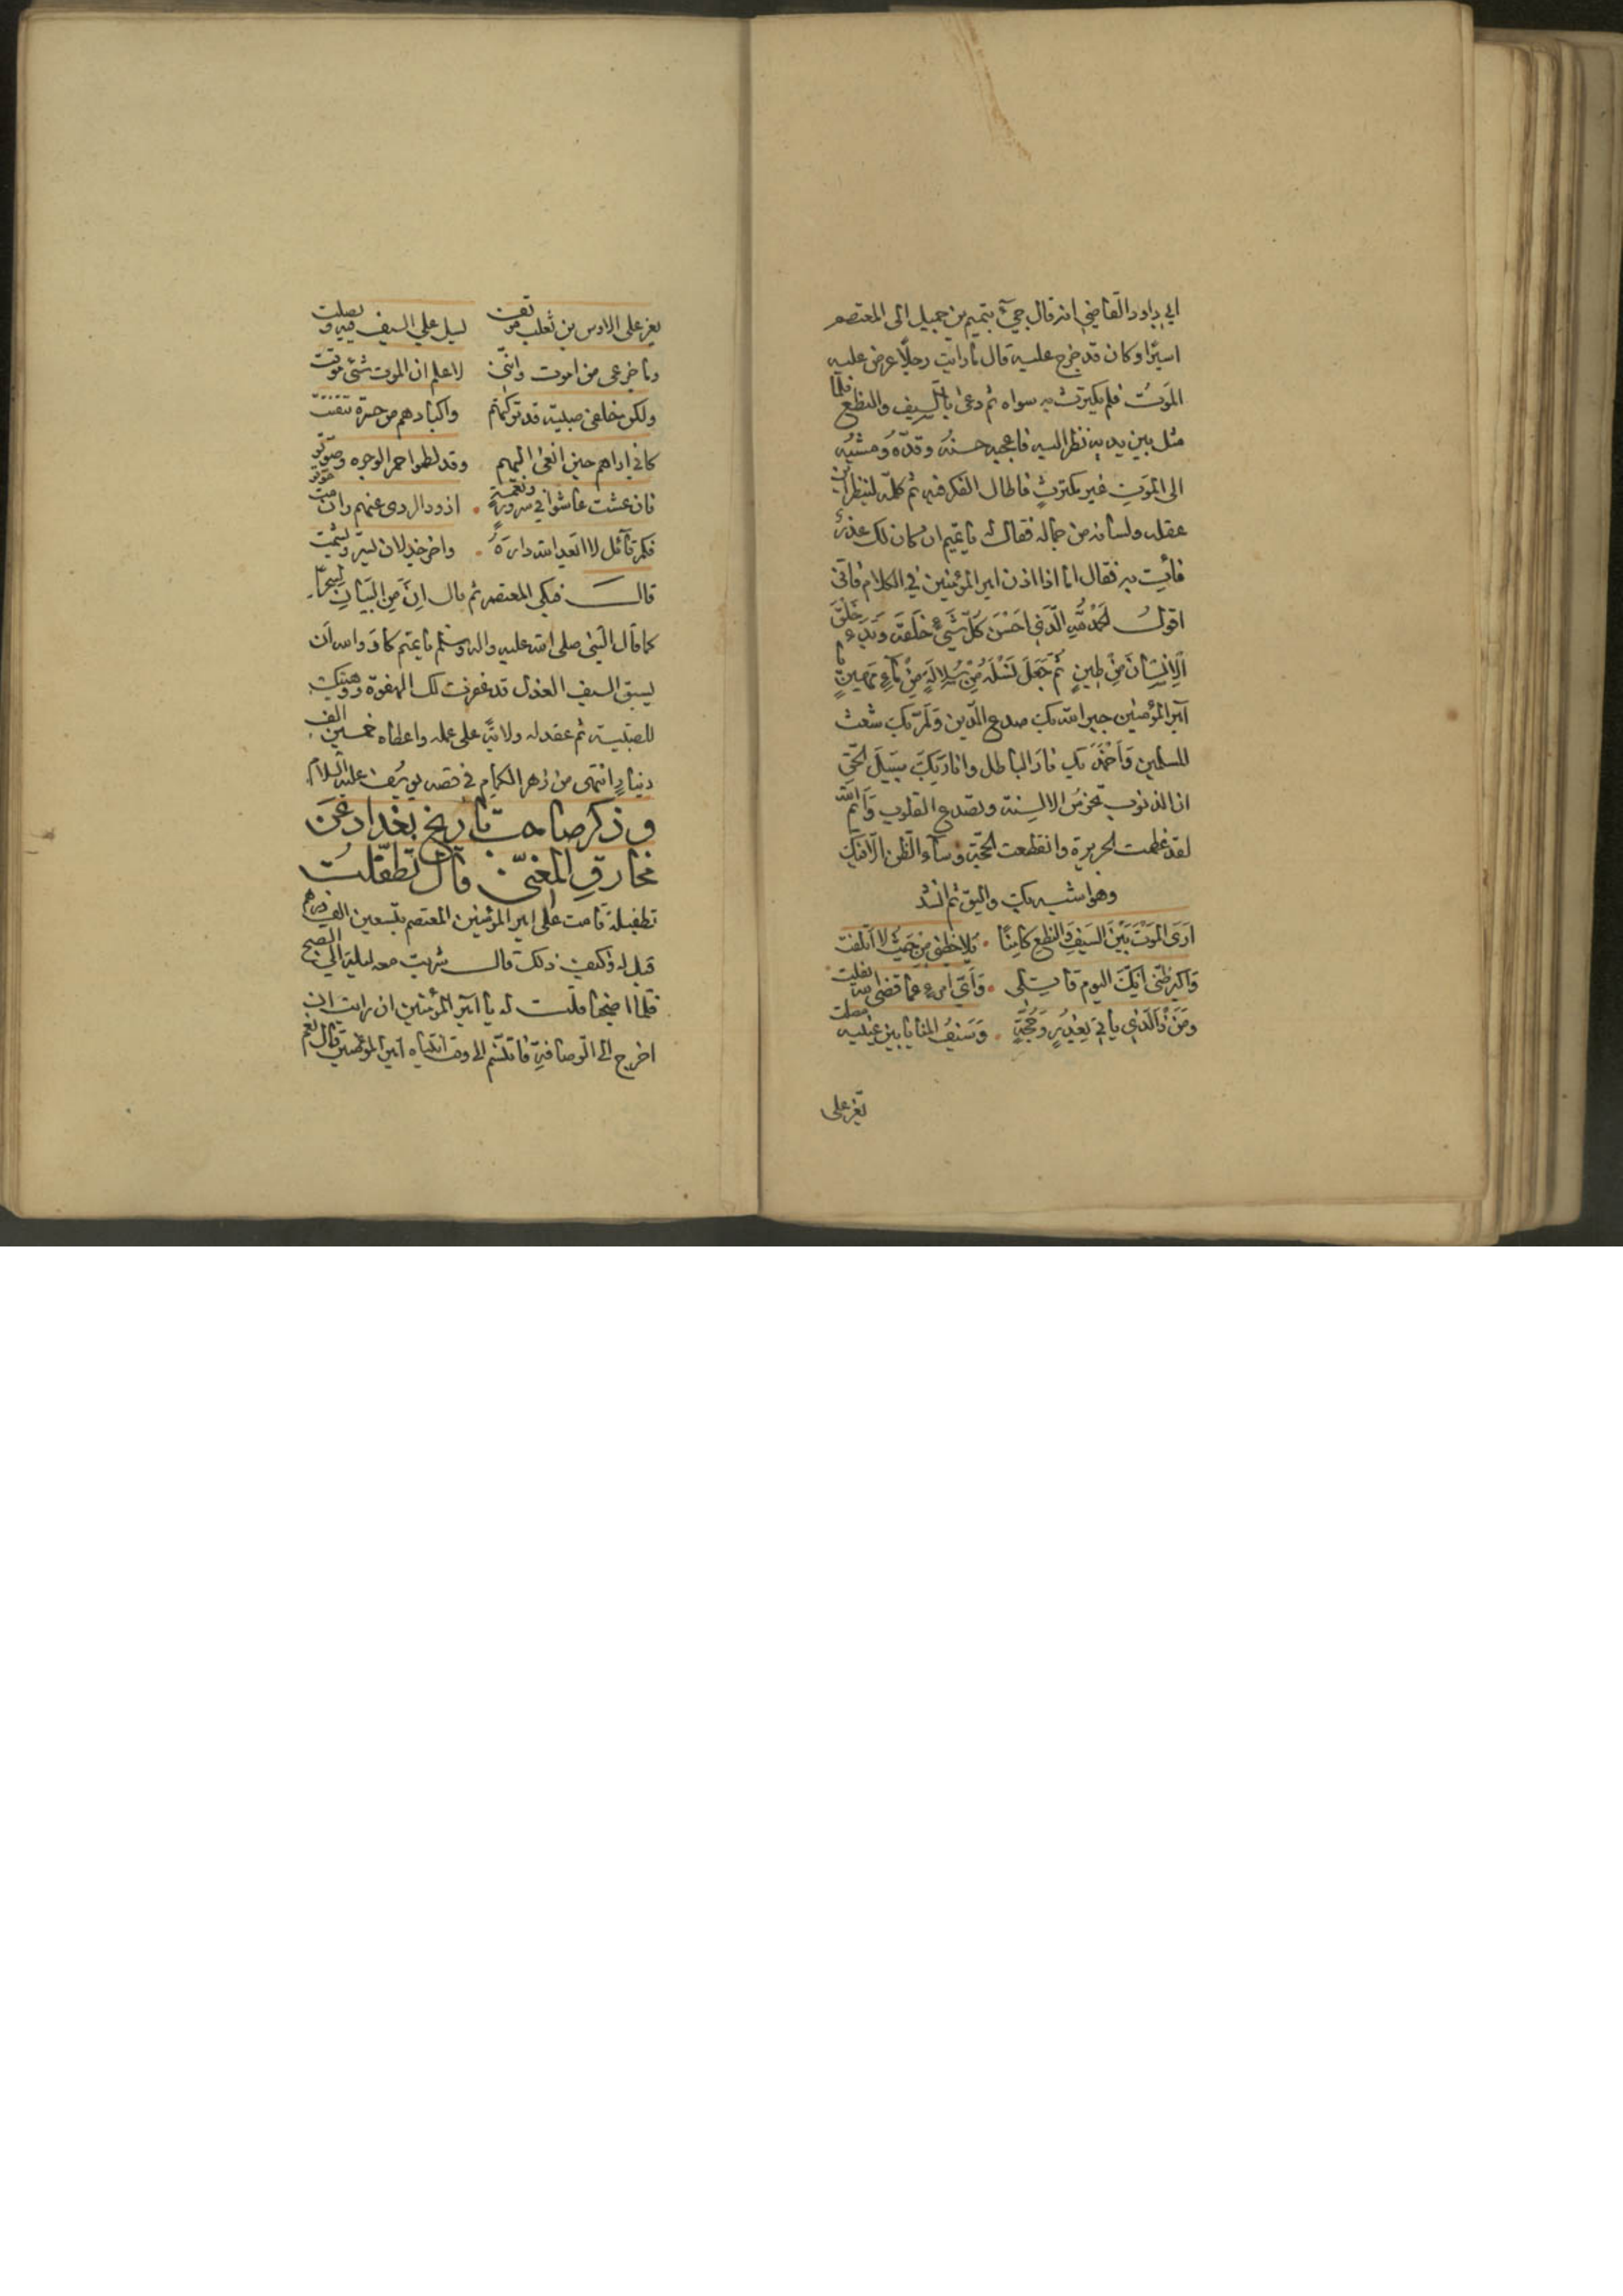 ابي داود القاضي انه قال جيٓء بتميم بن جميل الى المعتصم
اسيرًا وكان قد خرج عليه قال ما رايت رجلًا عرض عليه
الموتُ فلم يكترث به سواه ثم دعى بالسيف والنطع فلما
مثل بين يديه نظر اليه فاعجبه حسنهُ وقدّهُ ومشيُه
الى الموت غير مكترثٍ فاطال الفكر فيه ثم كلمه لينظر اين
عقله ولسانه من جماله فقال له يا تميم ان كان لك عذرٌ
فأت به فقال اما اذا اذن امير المؤمنين في الكلام فاني
اقول الحمد لله الَّذي احْسَنَ كُلّ شَيْءٍ خلَقَهُ وَبَدَءَ خَلْقَ
الْاِنْسَانَ مِنْ طِينٍ ثُمَّ جَعَلَ نَسْلَهُ مِنْ سُلالَةٍ مِنْ مَآءٍ مَهِينٍ يا
امير المؤمنين جبر الله بك صدع الدين وَلَمَّ بك شعث
المسلمين وَاَخْمَدَ بك نارَ الباطل وانارَ بكَ سبيلَ الحقّ
ان الذنوب تخرسُ الالسِنة وتصدع القلوب وَايْمُ الله
لقد عظمت الجريرة وانقطعت الحجّة وسآء الظن الّا فيك
وهو اشبه بك واليق ثم انشد
ارَى الموْتَ بَيْنَ السَيفِ والنطع كامِنًا • يُلاحِظني مِنْ حَيثُ لا اَتَلَفَّتُ
وَاكبر ظني اَنّكَ اليومَ قاتِلي • وَاَيّ امرءٍ عما قضى الله يفلت
ومَنْ ذَا الّذي ياتي بِعُذرٍ وَحُجّةٍ • وَسَيفُ المنايا بين عينيه مصلت
يعز على
يعز على الاوس بن ثعلب موقف يسل علي السيف فيه و
وما جزعي من ان اموت وانني لاعلم ان الموت شئ موقت
ولكن خلفي صبية قد تركتهم واكبادهم من حسرة تتفتت
كاني اراهم حين انعى اليهم وقد لطموا حر الوجوه وصوتو
فان عشت عاشوا في سرور ونعمة • اذود الردى عنهم وان مت موتو
فكم قآئل لا ابعد الله داره • واخر جذلان يسر ويشمت
قال فبكى المعتصم ثم قال اِنَّ مِنَ البَيَانِ لَسِحْرًا
كما قال النبي صلى الله عليه واله وسلم يا تميم كاد والله ان
يسبق السيف العذل قد غفرت لك الهفوة ووهبتك
للصبية ثم عقد له ولايةً على عمله واعطاه خمسين الف
دينارٍ انتهى من زهر الكمام في قصه يوسُف عليه السلام
وذكر صاحبُ تاريخ بغداد عَنَ
مخارقِ المغنّي قال تطفّلتُ
تطفيلة قامت على امير المؤمنين المعتصم بتسعين الف درهم
قيل له وكيف ذلك قال شربت معه ليلة الي الصبح
فلما اصبحنا قلت له يا امير المؤمنين ان رايت ان
اخرج الى الرصافة فاتنسّم الى وقت انتباه امير المؤمنين قال نعم